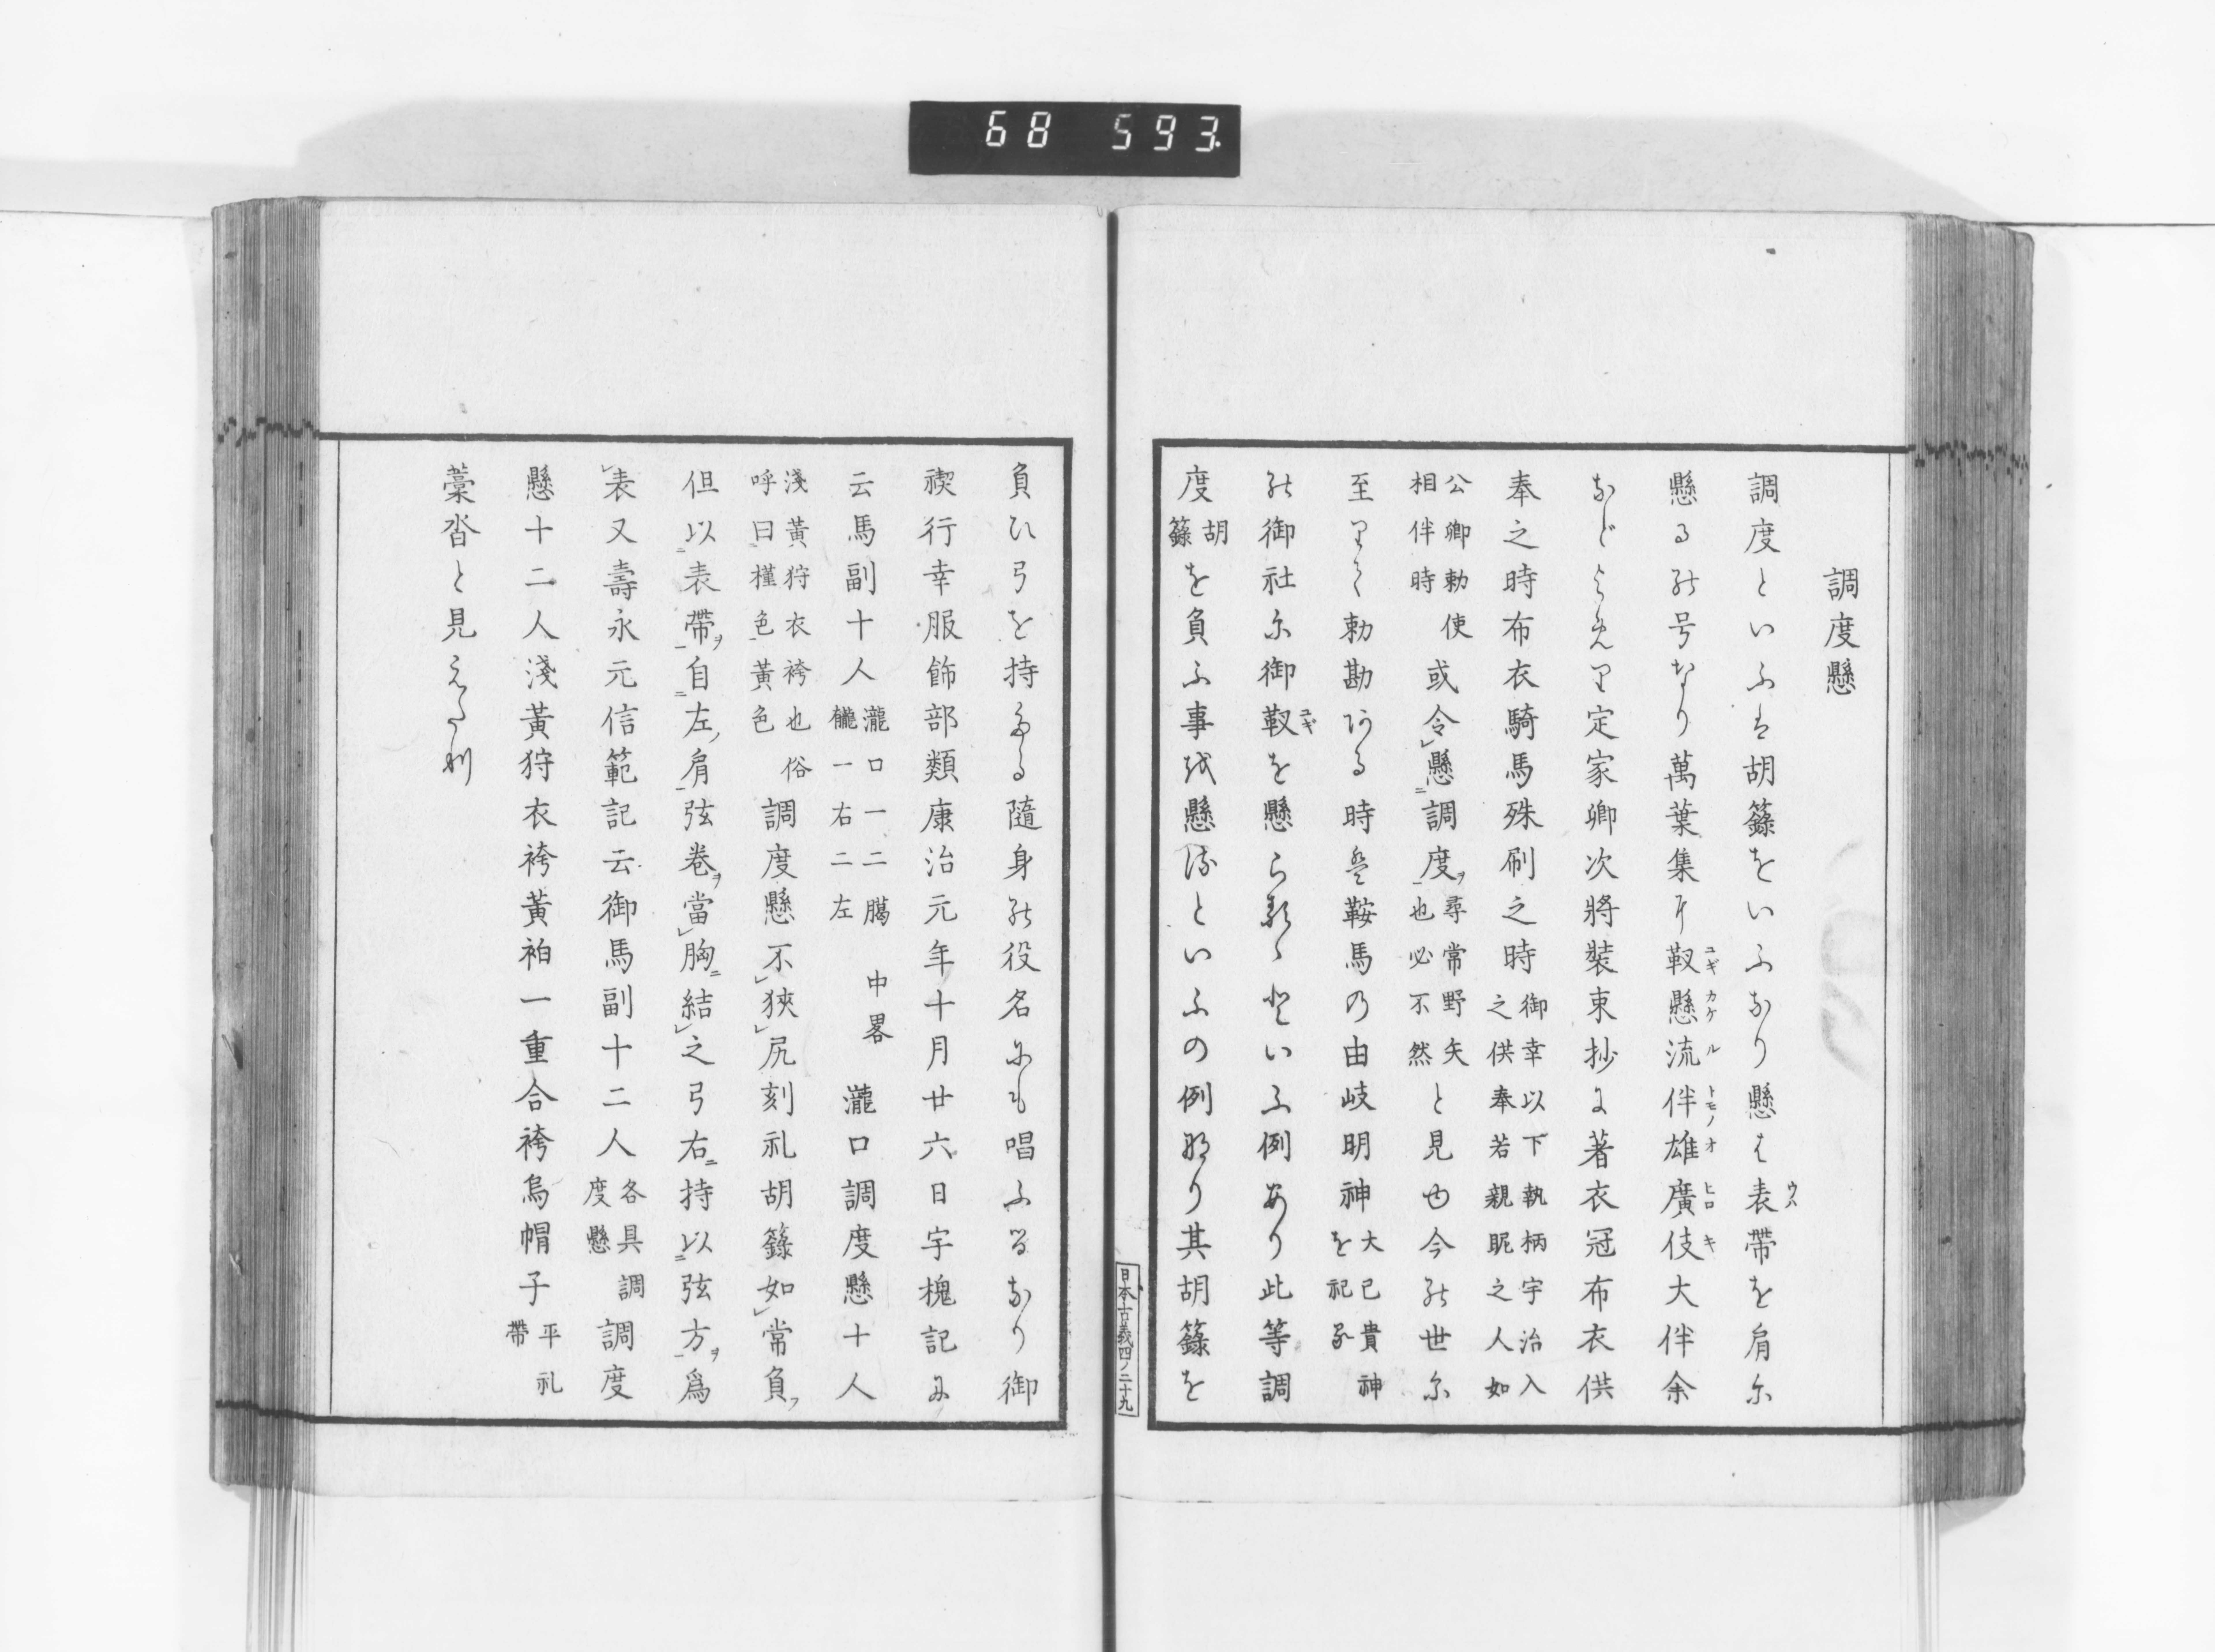 68 593
調度懸
調度といふは胡籙をいふなり懸は表帶を肩尓
懸るの号なり萬葉集ニ靫懸流伴雄廣伎大伴余
などよめり定家卿次將裝束抄に著衣冠布衣供
奉之時布衣騎馬殊刷之時御幸以下執柄宇治入之供奉若親昵之人如
公卿勅使相伴時或令懸調度尋常野矢也必不然と見ゆ今の世尓
至りて勅勘ある時は鞍馬の由岐明神大已貴神を祀る
の御社尓御靫を懸らるゝといふ例あり此等調
度胡籙を負ふ事を懸るといふの例なり其胡籙を
日本古義四ノ二十九
負ひ弓を持たる隨身の役名にも唱ふるなり御
禊行幸服飾部類康治元年十月廿六日宇槐記に
云馬副十人瀧口一二臈 一右二左 中畧 瀧口調度懸十人
淺黃狩衣袴也俗呼曰槿色黃色調度懸不狹尻刻礼胡籙如常負
但以表帶自左肩弦卷當胸結之弓右持以弦方爲
表又壽永元信範記云御馬副十二人各具調度懸調度
懸十二人淺黃狩衣袴黃袙一重合袴烏帽子平礼帶
藁沓と見えたり